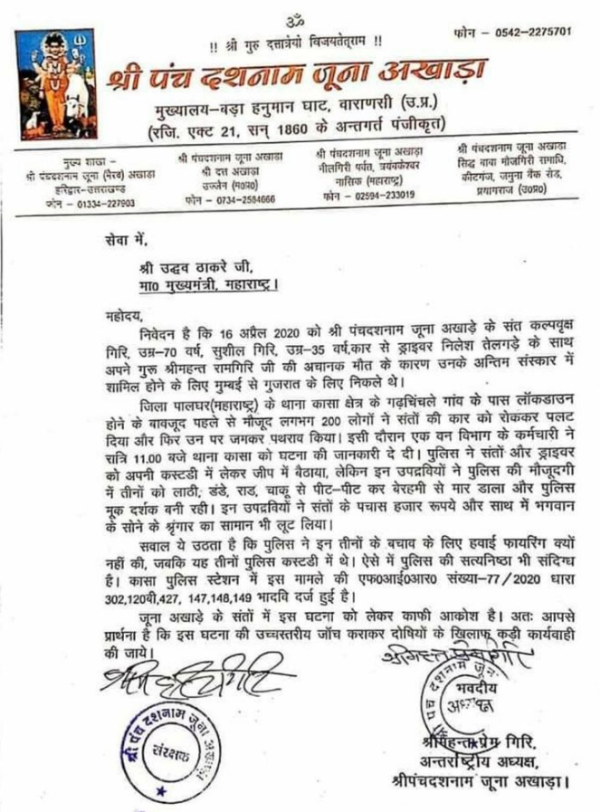 ॐ
!! श्री गुरु दत्तात्रेयो विजयतेत्राम !!
फोन - 0542-2275701
श्री पंच दशनाम जूना अखाड़ा
मुख्यालय-बड़ा हनुमान घाट, वाराणसी (उ.प्र.)
(रजि. एक्ट 21, सन् 1860 के अन्तगर्त पंजीकृत)
मुख्य शाखा -
श्री पंचदशनाम जूना (भैरव) अखाड़ा
हरिद्वार-उत्तराखण्ड
फोन - 01334-227903
श्री पंचदशनाम जूना अखाड़ा
श्री दत्त अखाड़ा
उज्जैन (म०प्र०)
फोन - 0734-2584666
श्री पंचदशनाम जूना अखाड़ा
नीलगिरी पर्वत, त्रयंवकेश्वर
नासिक (महाराष्ट्र)
फोन - 02594-233019
श्री पंचदशनाम जूना अखाड़ा
सिद्ध बाबा मौजगिरी समाधि,
कीटगंज, जमुना बैंक रोड,
प्रयागराज (उ०प्र०)
सेवा में,
श्री उद्धव ठाकरे जी,
मा० मुख्यमंत्री, महाराष्ट्र।
महोदय,
निवेदन है कि 16 अप्रैल 2020 को श्री पंचदशनाम जूना अखाड़े के संत कल्पवृक्ष
गिरि, उम्र-70 वर्ष, सुशील गिरि, उम्र-35 वर्ष,कार से ड्राइवर निलेश तेलगड़े के साथ
अपने गुरू श्रीमहन्त रामगिरि जी की अचानक मौत के कारण उनके अन्तिम संस्कार में
शामिल होने के लिए मुम्बई से गुजरात के लिए निकले थे।
जिला पालघर(महाराष्ट्र) के थाना कासा क्षेत्र के गढ़चिंचले गांव के पास लॉकडाउन
होने के बावजूद पहले से मौजूद लगभग 200 लोगों ने संतों की कार को रोककर पलट
दिया और फिर उन पर जमकर पथराव किया। इसी दौरान एक वन विभाग के कर्मचारी ने
रात्रि 11.00 बजे थाना कासा को घटना की जानकारी दे दी। पुलिस ने संतों और ड्राइवर
को अपनी कस्टडी में लेकर जीप में बैठाया, लेकिन इन उपद्रवियों ने पुलिस की मौजूदगी
में तीनों को लाठी, डंडे, राड, चाकू से पीट-पीट कर बेरहमी से मार डाला और पुलिस
मूक दर्शक बनी रही। इन उपद्रवियों ने संतों के पचास हजार रूपये और साथ में भगवान
के सोने के श्रृंगार का सामान भी लूट लिया।
सवाल ये उठता है कि पुलिस ने इन तीनों के बचाव के लिए हवाई फायरिंग क्यों
नहीं की, जबकि यह तीनों पुलिस कस्टडी में थे। ऐसे में पुलिस की सत्यनिष्ठा भी संदिग्ध
है। कासा पुलिस स्टेशन में इस मामले की एफ०आई०आर० संख्या-77/2020 धारा
302,120बी,427, 147,148,149 भादवि दर्ज हुई है।
जूना अखाड़े के संतों में इस घटना को लेकर काफी आकोश है। अतः आपसे
प्रार्थना है कि इस घटना की उच्चस्तरीय जाँच कराकर दोषियों के खिलाफ कड़ी कार्यवाही
की जाये।
श्री पंच दशनाम जूना अखाड़ा
संरक्षक
श्रीमहन्त प्रेमगिरि
श्री पंच दशनाम जूना
भवदीय
अध्यक्ष
श्रीमहन्त प्रेम गिरि,
अन्तर्राष्ट्रीय अध्यक्ष,
श्रीपंचदशनाम जूना अखाड़ा।